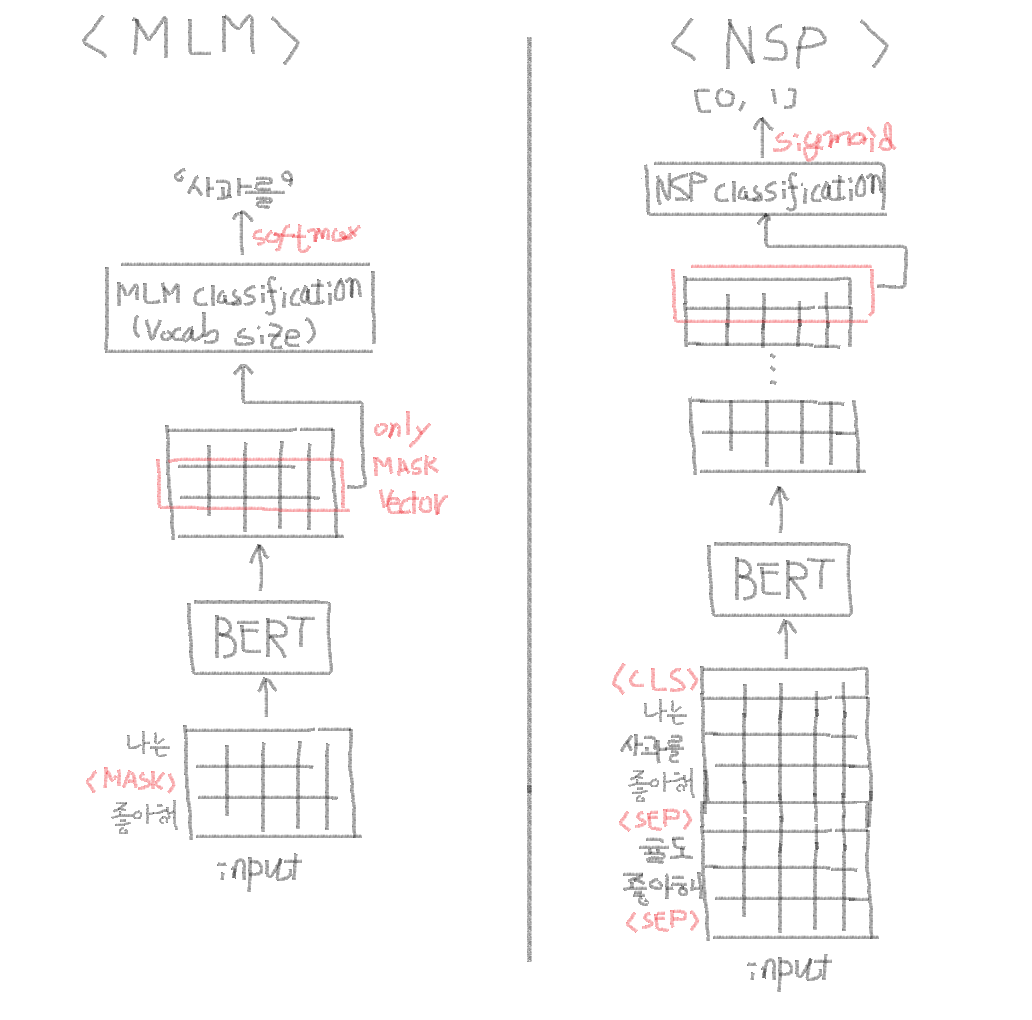 <MLM>
'사과를'
softmax
MLM classification
(Vocab size)
only
MASK
Vector
BERT
나는
<MASK>
좋아해
input
<NSP>
[0, 1]
sigmoid
NSP classification
BERT
<CLS>
나는
사과를
좋아해
<SEP>
귤도
좋아해
<SEP>
input